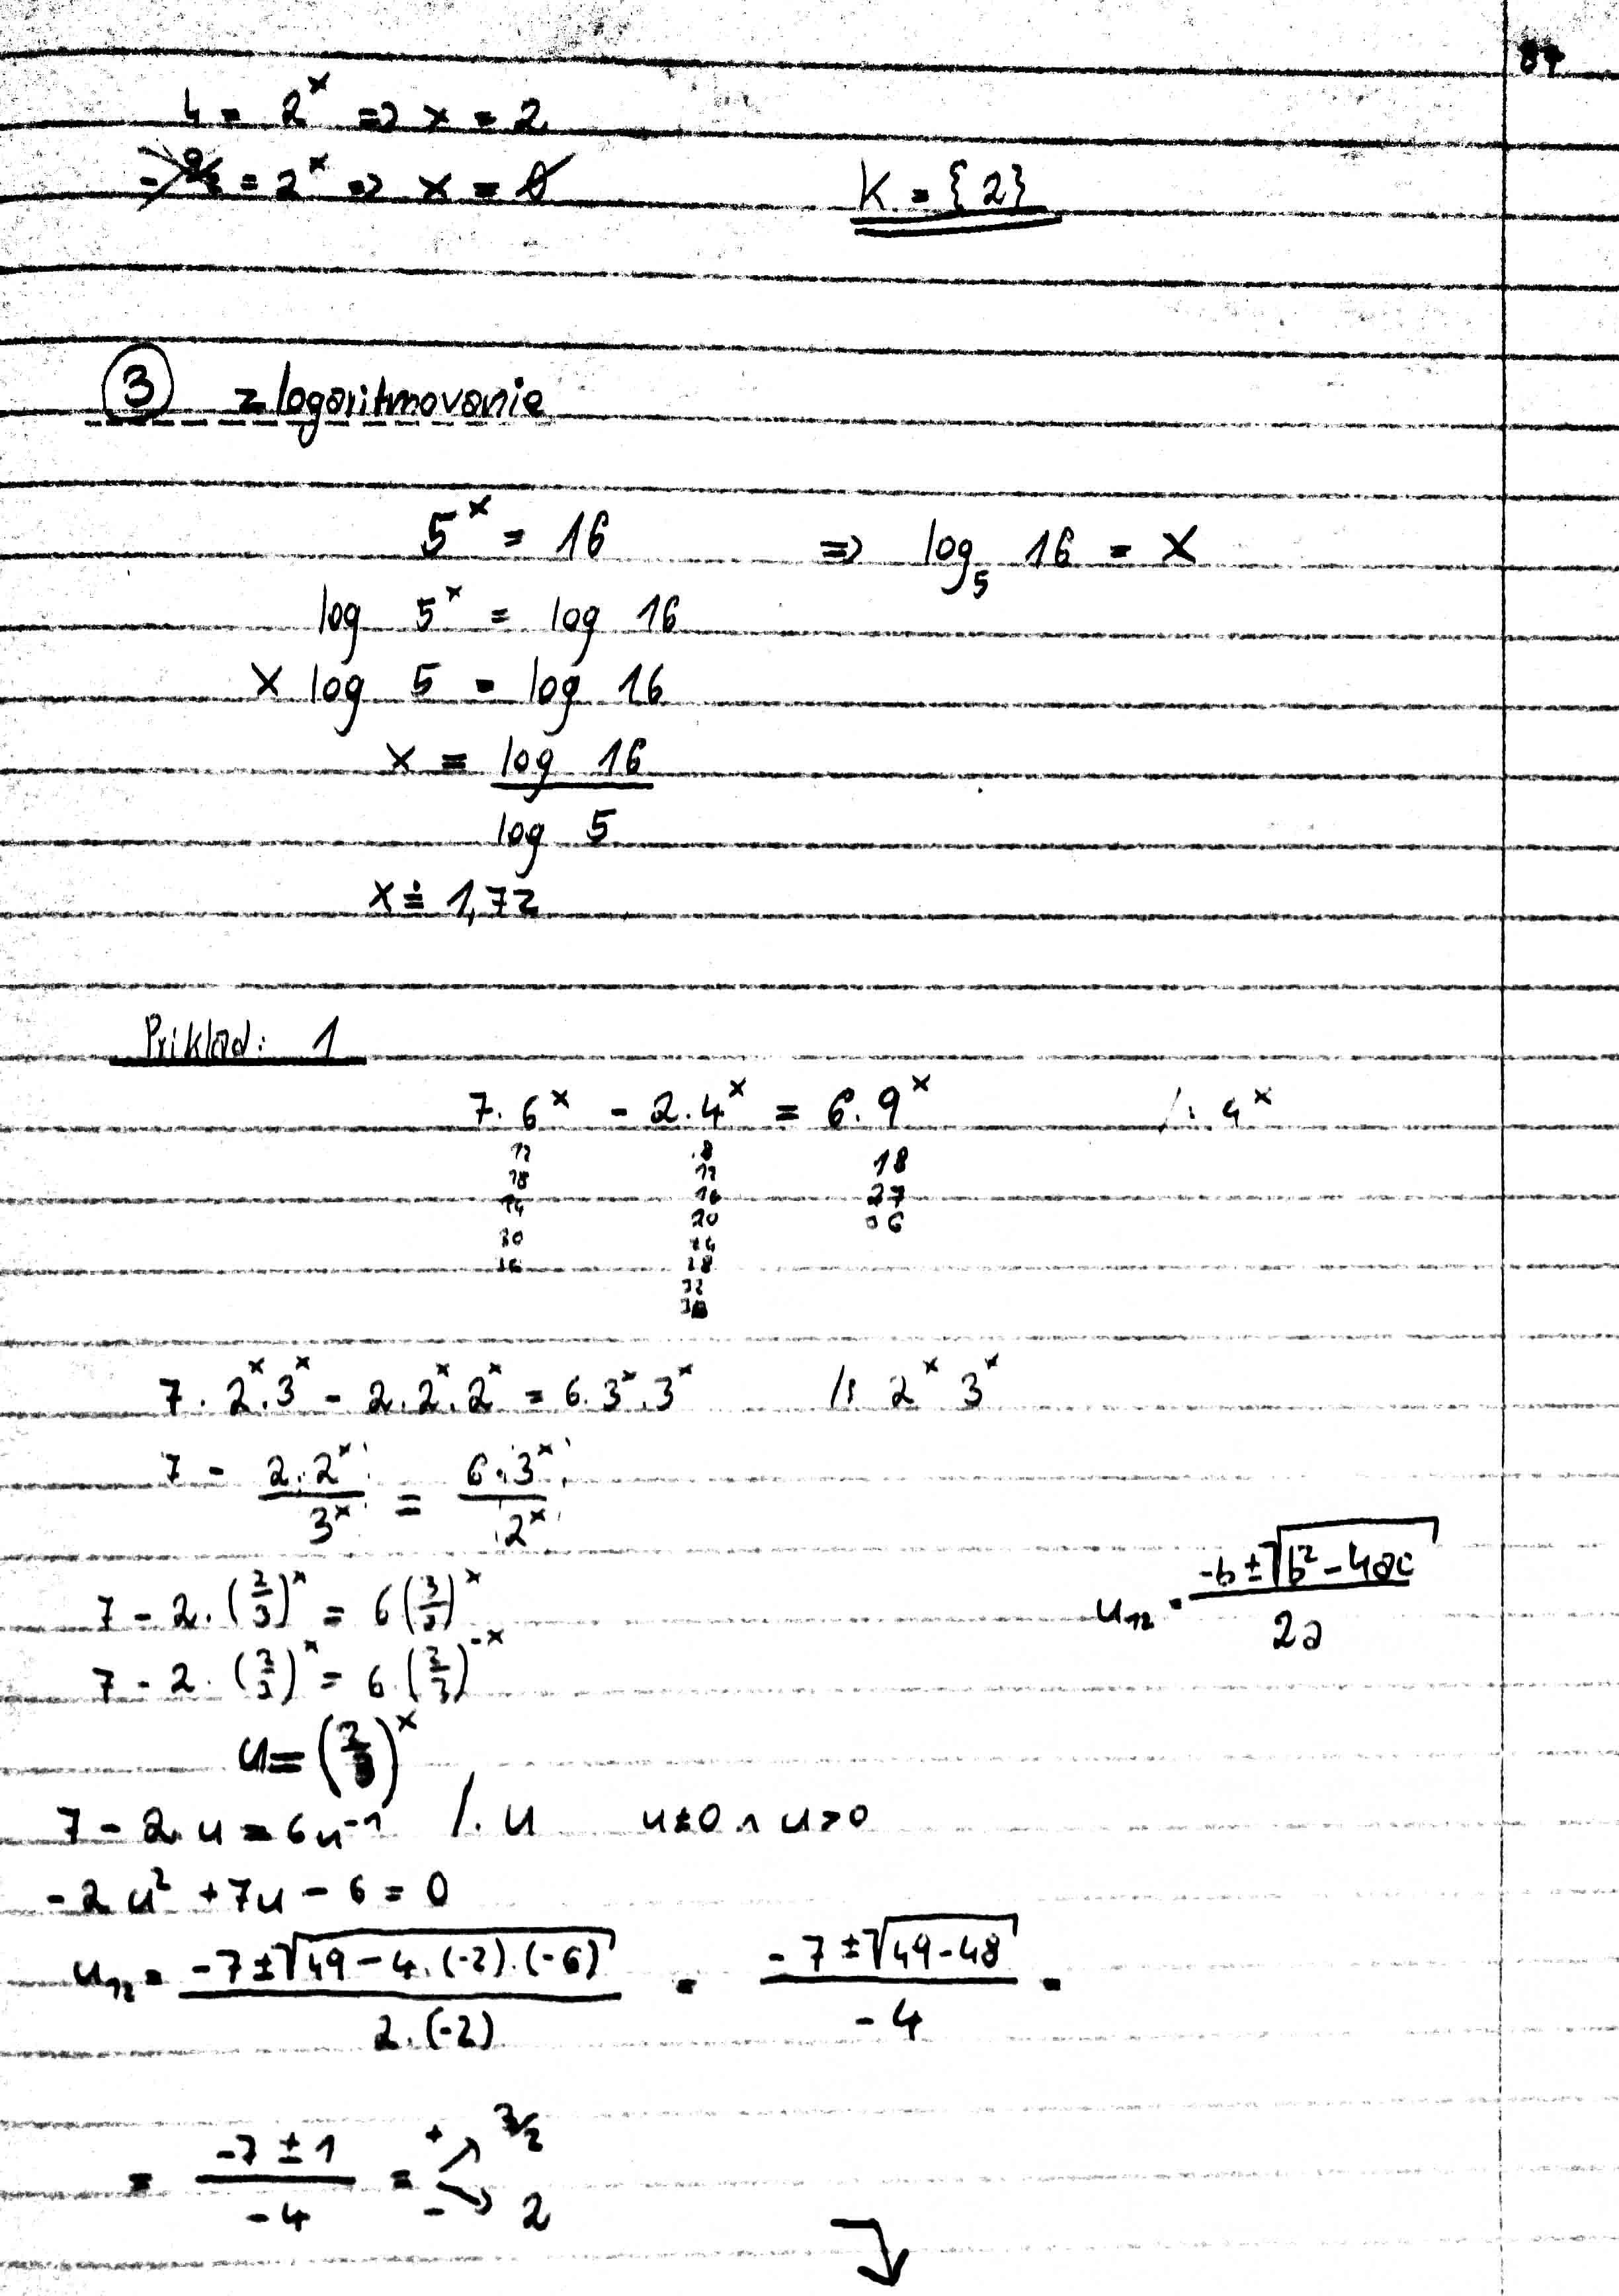 87
4 = 2^x => x = 2
= 2^x => x = ∅
K = {2}
3 zlogaritmovanie
5^x = 16 => log_5 16 = x
log 5^x = log 16
x log 5 = log 16
x = log 16 / log 5
x ≐ 1,72
Príklad: 1
7.6^x - 2.4^x = 6.9^x /: 4^x
12 8 18
18 12 27
24 16 36
30 20
36 24
28
32
36
7. 2^x.3^x - 2.2^x.2^x = 6.3^x.3^x /: 2^x 3^x
7 - 2.2^x / 3^x = 6.3^x / 2^x
7 - 2.(2/3)^x = 6(3/2)^x
u_12 = -b ± √(b² - 4ac) / 2a
7 - 2.(2/3)^x = 6.(2/3)^-x
u = (2/3)^x
7 - 2.u = 6u^-1 /. u u≠0 ∧ u>0
-2u² + 7u - 6 = 0
u_12 = -7 ± √(49 - 4.(-2).(-6)) / 2.(-2) = -7 ± √(49-48) / -4 =
= -7 ± 1 / -4 = + 3/2
- 2